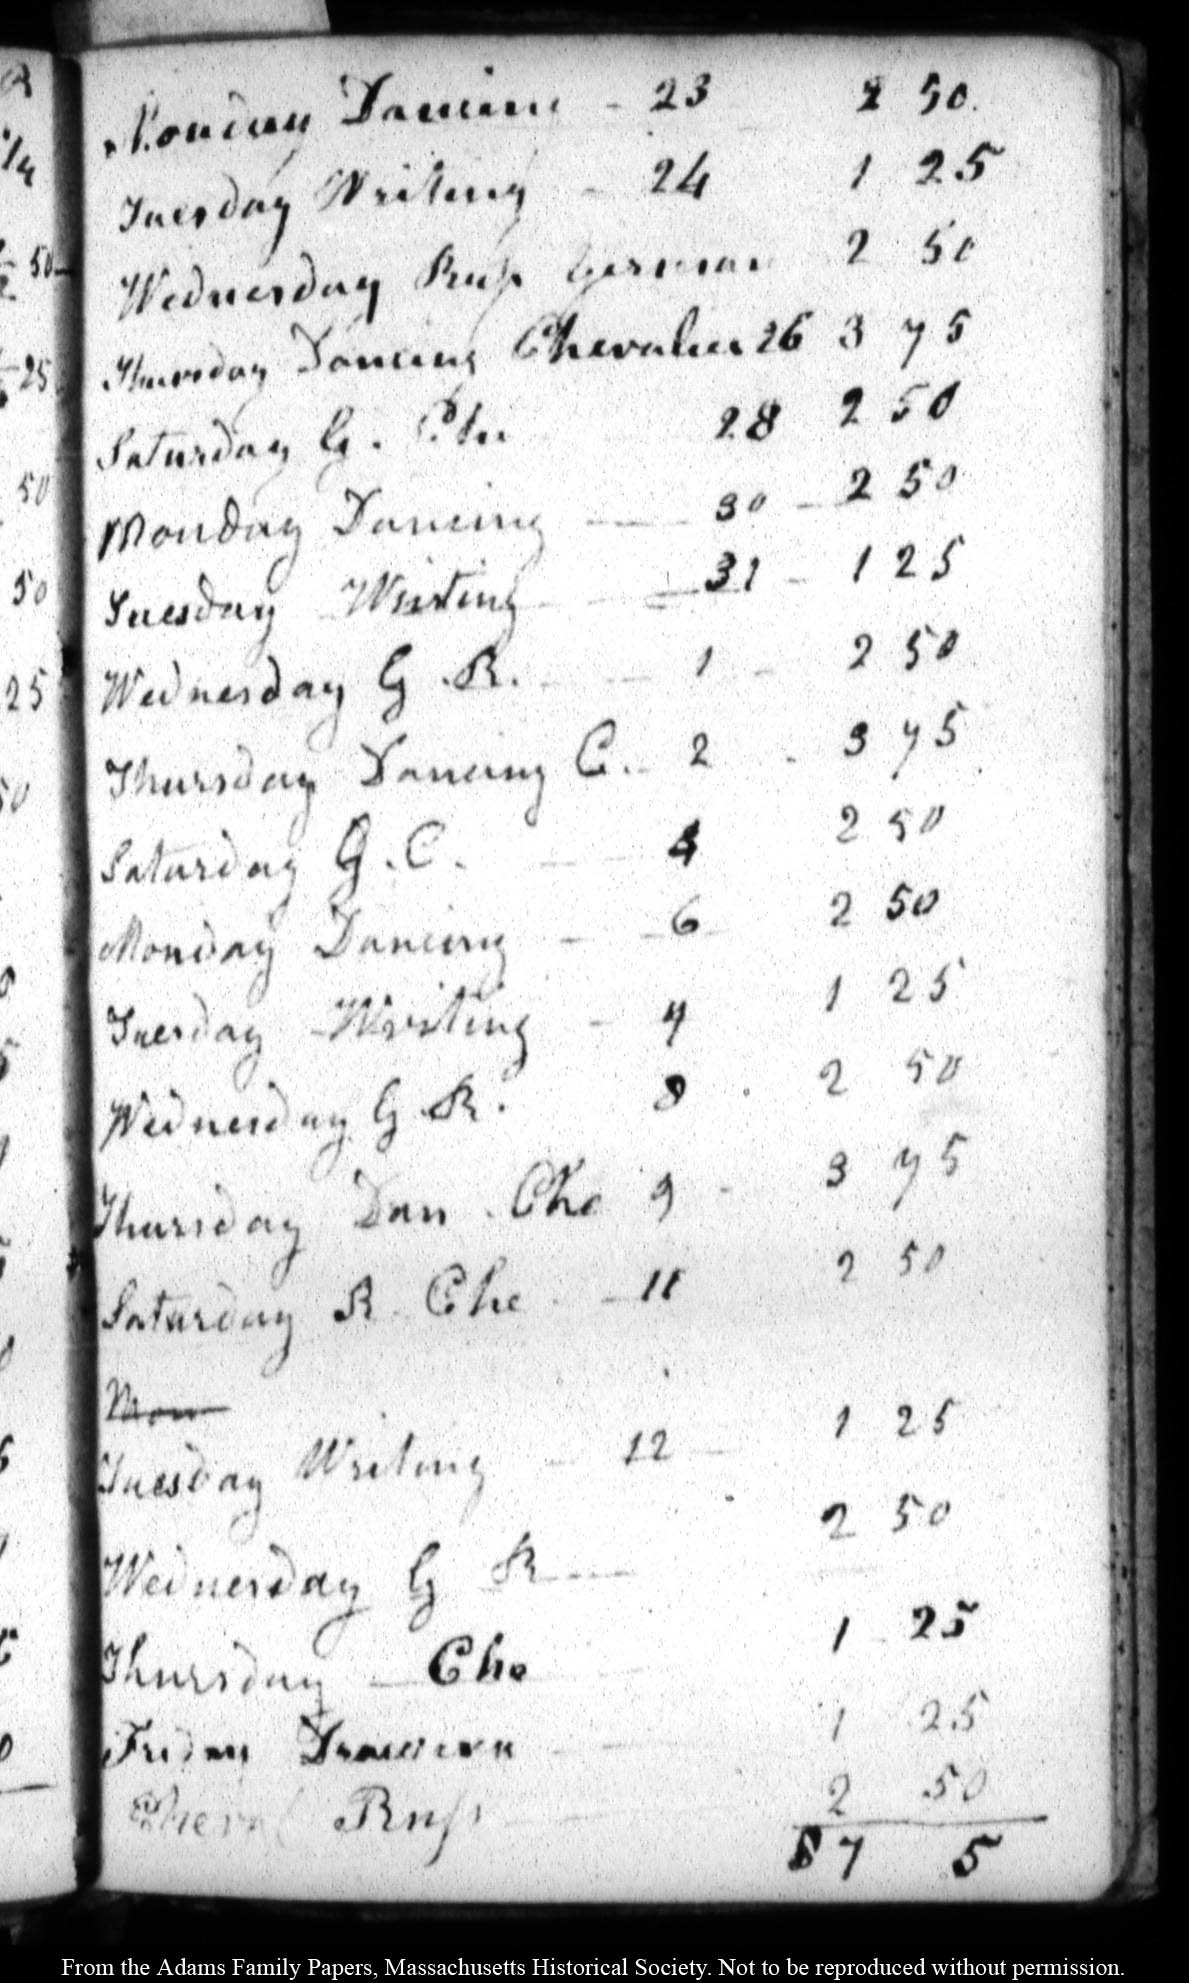 Monday Dancing - 23 2 50.
Tuesday Writing - 24 1 25
Wednesday Russ German 2 50
Thursday Dancing Chevalier 26 3 75
Saturday G. Che 28 2 50
Monday Dancing - 30 - 2 50
Tuesday Writing - 31 - 1 25
Wednesday G. R. - 1 - 2 50
Thursday Dancing C. - 2 - 3 75
Saturday G. C. - 4 2 50
Monday Dancing - 6 2 50
Tuesday Writing - 7 1 25
Wednesday G R. 8 2 50
Thursday Dan. Che 9 - 3 75
Saturday R Che - 11 2 50
Mon
Tuesday Writing - 12 - 1 25
Wednesday G R - 2 50
Thursday - Che 1 25
Friday 1 25
Russ 2 50
7 5
50
25
50
50
25
50
From the Adams Family Papers, Massachusetts Historical Society. Not to be reproduced without permission.